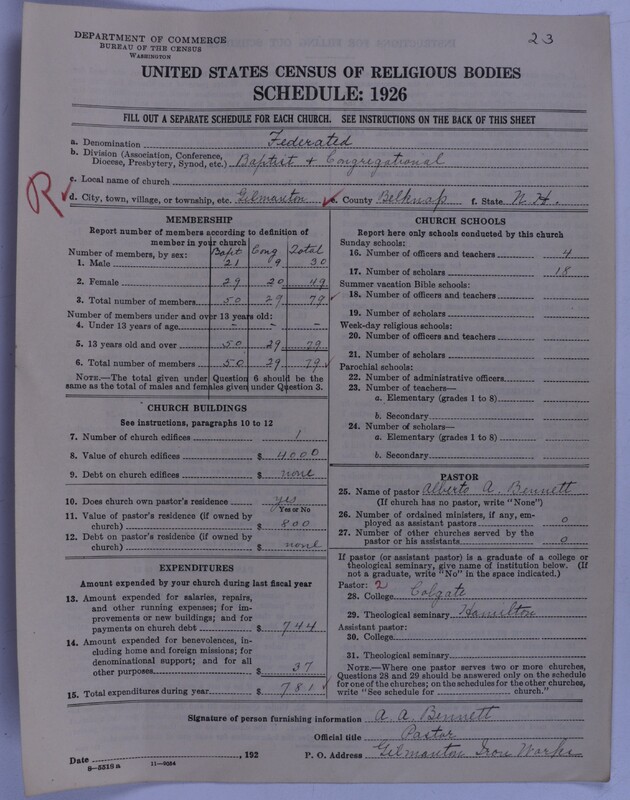 DEPARTMENT OF COMMERCE
BUREAU OF THE CENSUS
WASHINGTON
23
UNITED STATES CENSUS OF RELIGIOUS BODIES
SCHEDULE: 1926
FILL OUT A SEPARATE SCHEDULE FOR EACH CHURCH. SEE INSTRUCTIONS ON THE BACK OF THIS SHEET
a. Denomination Federated
b. Division (Association, Conference, Diocese, Presbytery, Synod, etc.) Baptist + Congregational
c. Local name of church
R
d. City, town, village, or township, etc. Gilmanton e. County Belknap f. State N. H.
MEMBERSHIP
Report number of members according to definition of
member in your church
Number of members, by sex: Bapt Cong Total
1. Male 21 9 30
2. Female 29 20 49
3. Total number of members 50 29 79
Number of members under and over 13 years old:
4. Under 13 years of age - - -
5. 13 years old and over 50 29 79
6. Total number of members 50 29 79
NOTE.—The total given under Question 6 should be the
same as the total of males and females given under Question 3.
CHURCH BUILDINGS
See instructions, paragraphs 10 to 12
7. Number of church edifices 1
8. Value of church edifices $ 4000
9. Debt on church edifices $ none
10. Does church own pastor's residence yes
Yes or No
11. Value of pastor's residence (if owned by
church) $ 800
12. Debt on pastor's residence (if owned by
church) $ none
EXPENDITURES
Amount expended by your church during last fiscal year
13. Amount expended for salaries, repairs,
and other running expenses; for im-
provements or new buildings; and for
payments on church debt $ 744
14. Amount expended for benevolences, in-
cluding home and foreign missions; for
denominational support; and for all
other purposes $ 37
15. Total expenditures during year $ 781
CHURCH SCHOOLS
Report here only schools conducted by this church
Sunday schools:
16. Number of officers and teachers 4
17. Number of scholars 18
Summer vacation Bible schools:
18. Number of officers and teachers
19. Number of scholars
Week-day religious schools:
20. Number of officers and teachers
21. Number of scholars
Parochial schools:
22. Number of administrative officers
23. Number of teachers—
a. Elementary (grades 1 to 8)
b. Secondary
24. Number of scholars—
a. Elementary (grades 1 to 8)
b. Secondary
PASTOR
25. Name of pastor Alberto A. Bennett
(If church has no pastor, write "None")
26. Number of ordained ministers, if any, em-
ployed as assistant pastors 0
27. Number of other churches served by the
pastor or his assistants 0
If pastor (or assistant pastor) is a graduate of a college or
theological seminary, give name of institution below. (If
not a graduate, write "No" in the space indicated.)
Pastor: 2
28. College Colgate
29. Theological seminary Hamilton
Assistant pastor:
30. College
31. Theological seminary
NOTE.—Where one pastor serves two or more churches,
Questions 28 and 29 should be answered only on the schedule
for one of the churches; on the schedules for the other churches,
write "See schedule for church."
Signature of person furnishing information A. A. Bennett
Official title Pastor
Date , 192 P. O. Address Gilmanton Iron Works
8-5518a 11-9034